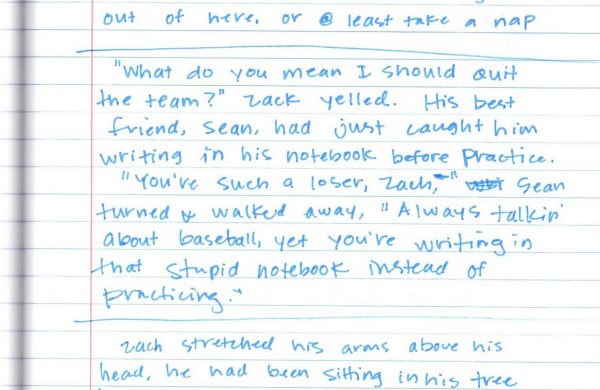 out of here, or @ least take a nap
"What do you mean I should quit
the team?" Zack yelled. His best
friend, Sean, had just caught him
writing in his notebook before practice.
"You're such a loser, Zach," Sean
turned & walked away, "Always talkin'
about baseball, yet you're writing in
that stupid notebook instead of
practicing."
Zach stretched his arms above his
head, he had been sitting in his tree